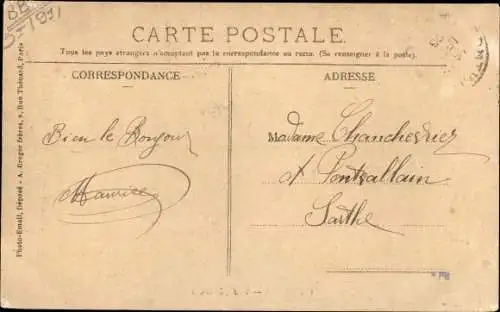 CARTE POSTALE
Tous les pays étrangers n'acceptant pas la correspondance au recto. (Se renseigner à la poste).
CORRESPONDANCE
ADRESSE
Bien le Bonjour
Maurice
Madame Chanchevrier
A Pontvallain
Sarthe
Photo-Email, Déposé - A. Breger frères, 9, Rue Thénard, Paris